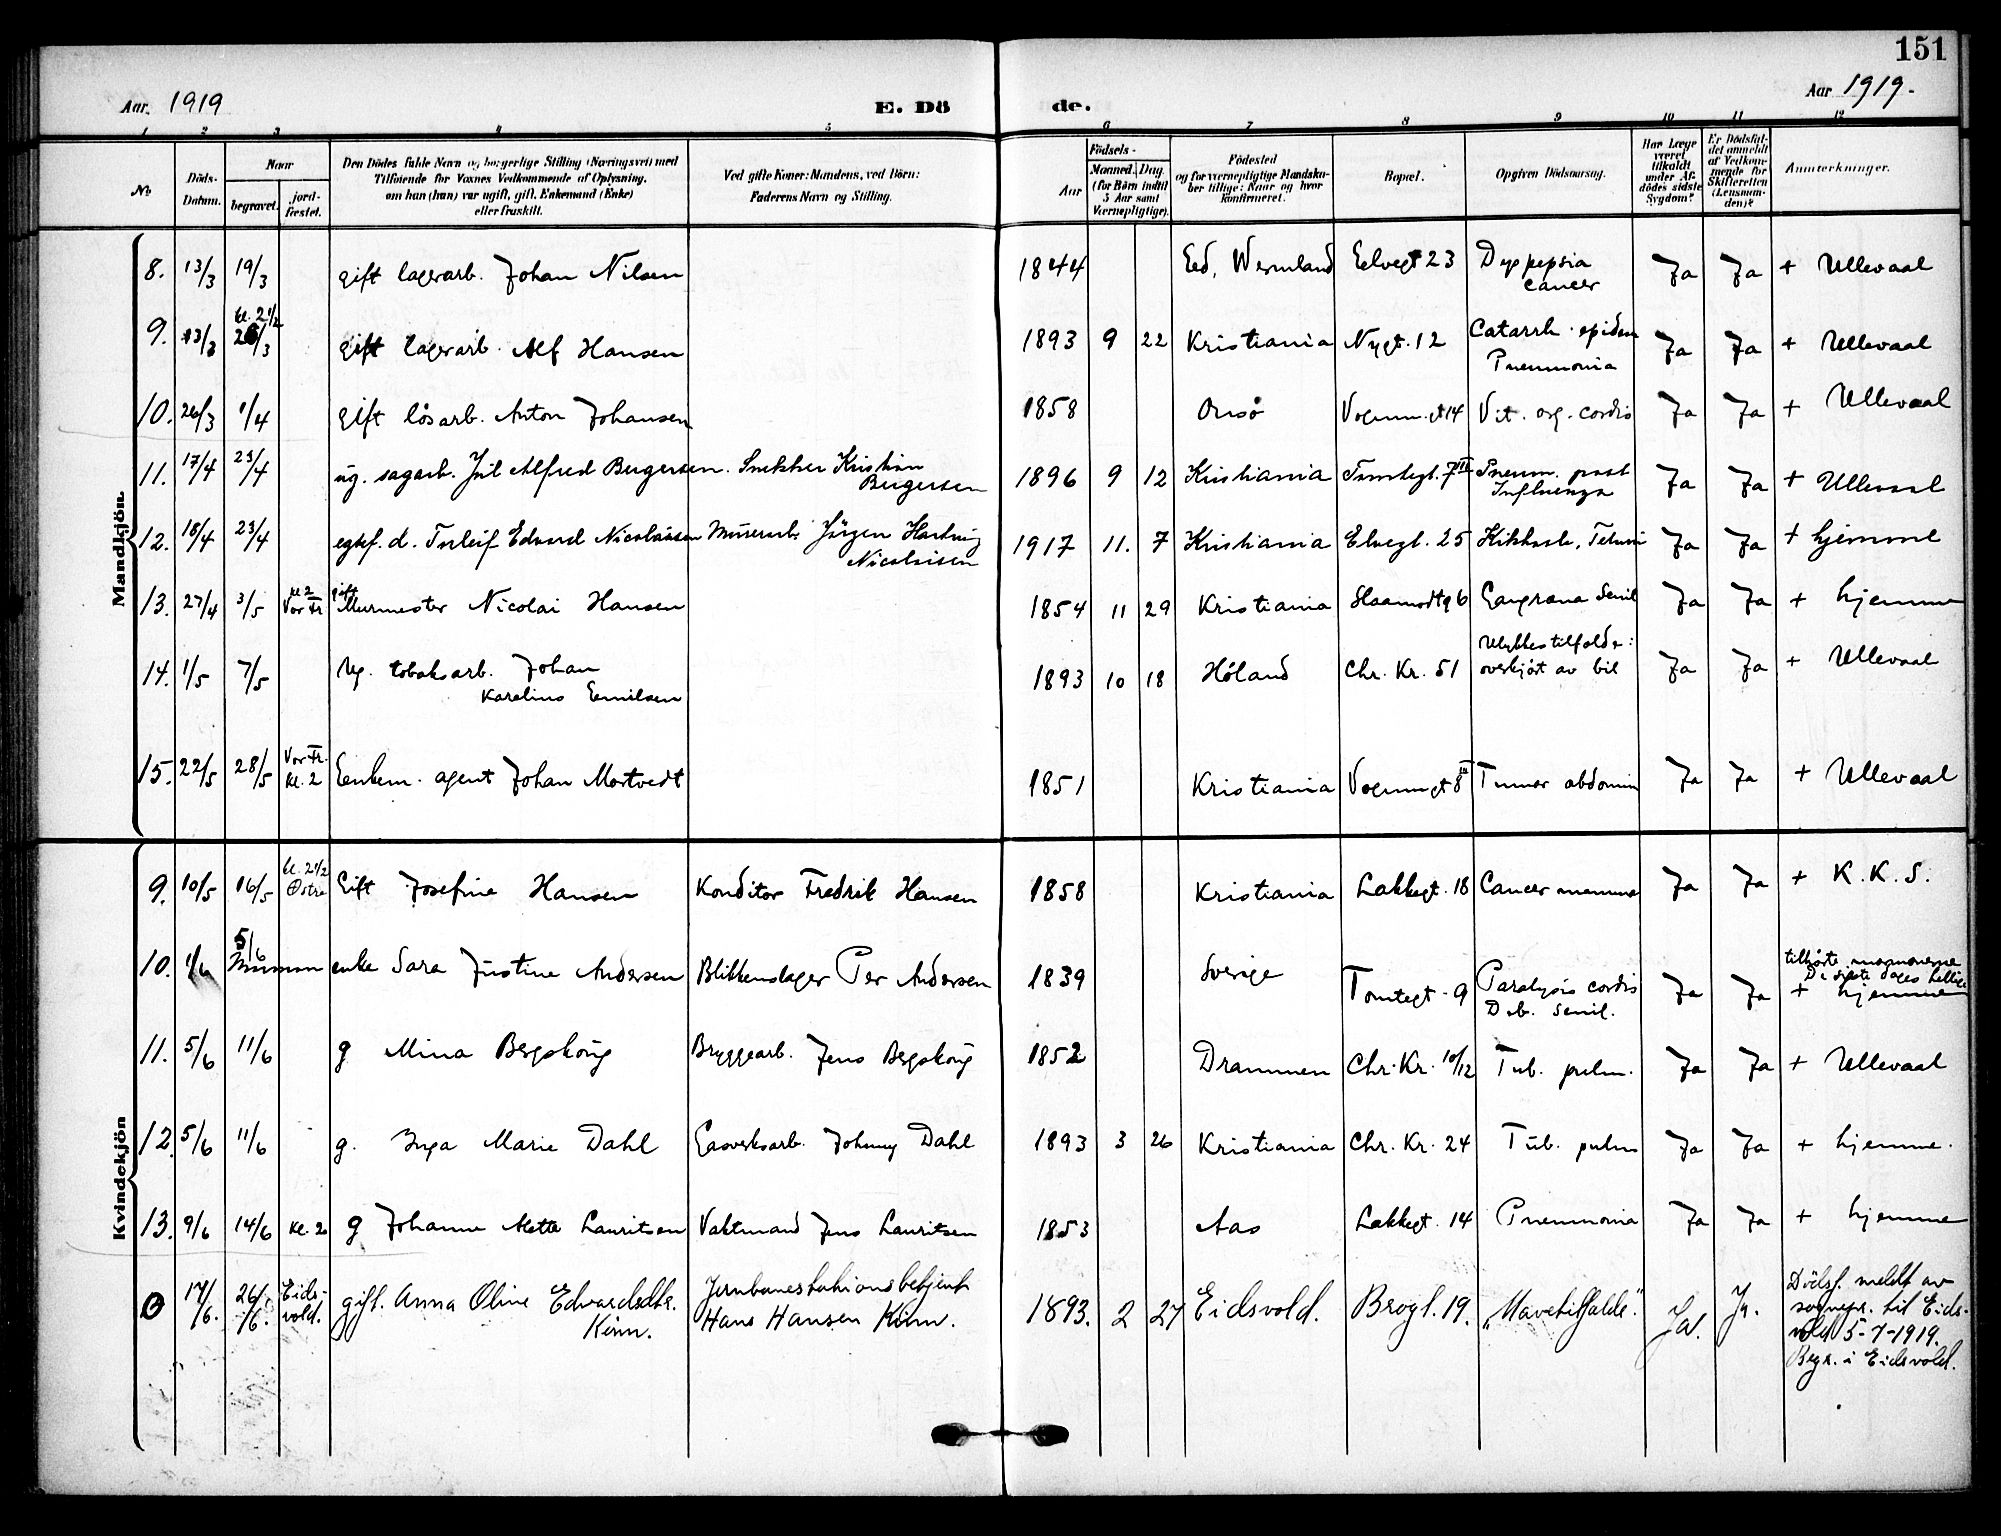 151
Aar. 1919 E. Dö de. Aar 1919.
1 2 3 4 5 6 7 8 9 10 11 12
No
Döds-Datum.
Naar
begravet.
jordfæstet.
Den Dödes fulde Navn og borgerlige Stilling (Næringsvei) med
Tilföiende for Voxnes Vedkommende af Oplysning,
om han (hun) var ugift, gift, Enkemand (Enke)
eller fraskilt.
Ved gifte Koner: Mandens, ved Börn:
Faderens Navn og Stilling.
Födsels-
Aar
Maaned. Dag.
(for Börn indtil
5 Aar samt
Værnepligtige).
Födested
og for værnepligtige Mandskaber tillige: Naar og hvor
konfirmeret.
Bopæl.
Opgiven Dödsaarsag.
Har Læge
været
tilkaldt
under Afdödes sidste
Sygdom?
Er Dödsfaldet anmeldt
af Vedkommende for
Skifteretten
(Lensmanden)?
Anmerkninger.
Mandkjön
8. 13/3 19/3 gift lagerarb. Johan Nilsen 1844 Eed, Wermland Eelvegt 23 Dyspepsia cancer Ja Ja + Ullevaal
9. 13/3 kl. 2 1/2 /3 gift lagerarb. Alf Hansen 1893 9 22 Kristiania Nygt. 12 Catarrh. epidem Pneumonia Ja Ja + Ullevaal
10. 26/3 1/4 gift lösarb. Anton Johansen 1858 Onsö Vognm.gt 14 Vit. org. cordis Ja Ja + Ullevaal
11. 17/4 23/4 ug. sagarb. Jul Alfred Bergersen. Snekker Kristian Bergersen 1896 9 12 Kristiania Tomtegt. 7 III Pneum. post Influenza Ja Ja + Ullevaal
12. 18/4 23/4 egtef. d. Torleif Edvard Nicolaisen Murerarb. Jörgen Hartvig Nicolaisen 1917 11. 7 Kristiania Elvegt. 25 Kikhoste, Ja Ja + hjemme
13. 27/4 3/5 kl 2 Vor Fr gift Murmester Nicolai Hansen 1854 11 29 Kristiania Haamodtg 6 Gangræna Senil Ja Ja + hjemme
14. 1/5 7/5 Ug. tobaksarb. Johan Karelius Emilsen 1893 10 18 Höland Chr. Kr. 51 Ulykkestilfælde: overkjört av bil Ja Ja + Ullevaal
15. 22/5 28/5 Vor Fr. kl. 2 Enkem. agent Johan Mortvedt 1851 Kristiania Vognmgt 8 III Tumor abdomin Ja Ja + Ullevaal
Kvindekjön
9. 10/5 16/5 kl. 2 1/2 Østre Gift Josefine Hansen Konditor Fredrik Hansen 1858 Kristiania Lakkegt. 18 Cancer mamma Ja Ja + K. K. S.
10. 1/6 5/6 Mormon enke Sara Justine Andersen Blikkenslager Per Andersen 1839 Sverige Tomtegt. 9 Paralysis cordis Deb. senil. Ja Ja tilhörte mormonerne De sidste dages hellige + hjemme
11. 5/6 11/6 g Mina Bergskoug Bryggearb. Jens Bergskoug 1852 Drammen Chr. Kr. 10/12 Tub. pulm. Ja Ja + Ullevaal
12. 5/6 11/6 g. Inga Marie Dahl Gasverksarb. Johnny Dahl 1893 3 26 Kristiania Chr. Kr. 24 Tub. pulm Ja Ja + hjemme.
13. 9/6 14/6 kl. 2 g Johanne Mette Lauritsen Vaktmand Jens Lauritsen 1853 Aas Lakkegt. 14 Pneumonia Ja Ja + hjemme
0 17/6. 26/6. Eidsvold. gift. Anna Oline Edvardsdtr. Kinn. Jernbanestationsbetjent Hans Hansen Kinn. 1893. 2 27 Eidsvold. Brogt. 19. "Mavetilfælde". Ja. Ja. Dödsf. meldt av sognepr. til Eidsvold 5-7-1919. Begr. i Eidsvold.